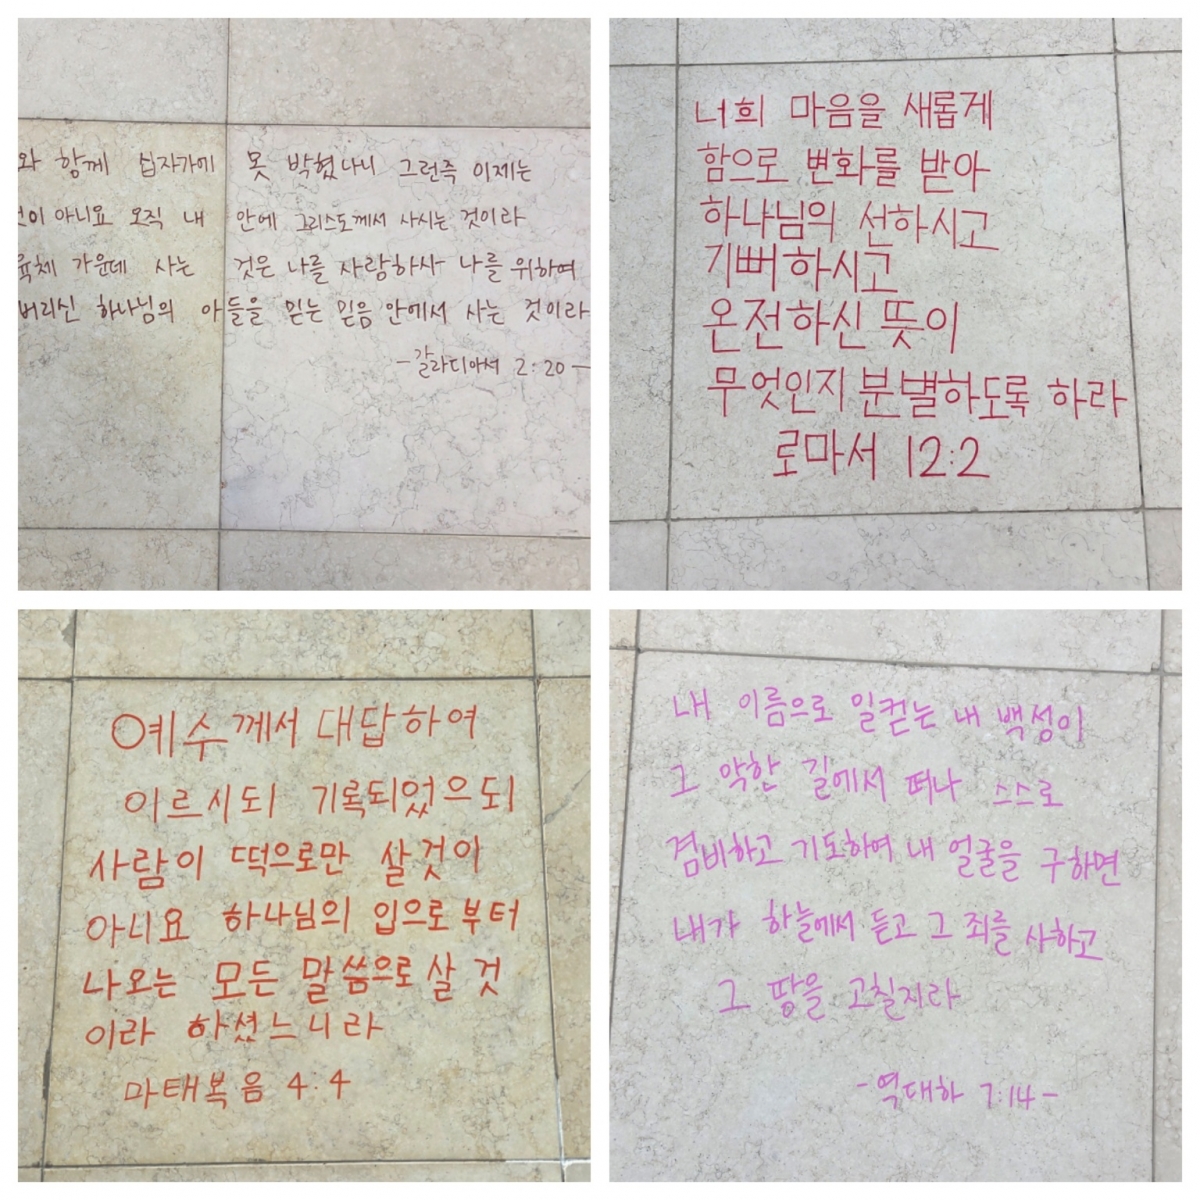 와 함께 십자가에 못 박혔나니 그런즉 이제는
것이 아니요 오직 내 안에 그리스도께서 사시는 것이라
육체 가운데 사는 것은 나를 사랑하사 나를 위하여
버리신 하나님의 아들을 믿는 믿음 안에서 사는 것이라
-갈라디아서 2:20-
너희 마음을 새롭게
함으로 변화를 받아
하나님의 선하시고
기뻐하시고
온전하신 뜻이
무엇인지 분별하도록 하라
로마서 12:2
예수께서 대답하여
이르시되 기록되었으되
사람이 떡으로만 살것이
아니요 하나님의 입으로부터
나오는 모든 말씀으로 살 것
이라 하셨느니라
마태복음 4:4
내 이름으로 일컫는 내 백성이
그 악한 길에서 떠나 스스로
겸비하고 기도하여 내 얼굴을 구하면
내가 하늘에서 듣고 그 죄를 사하고
그 땅을 고칠지라
-역대하 7:14-